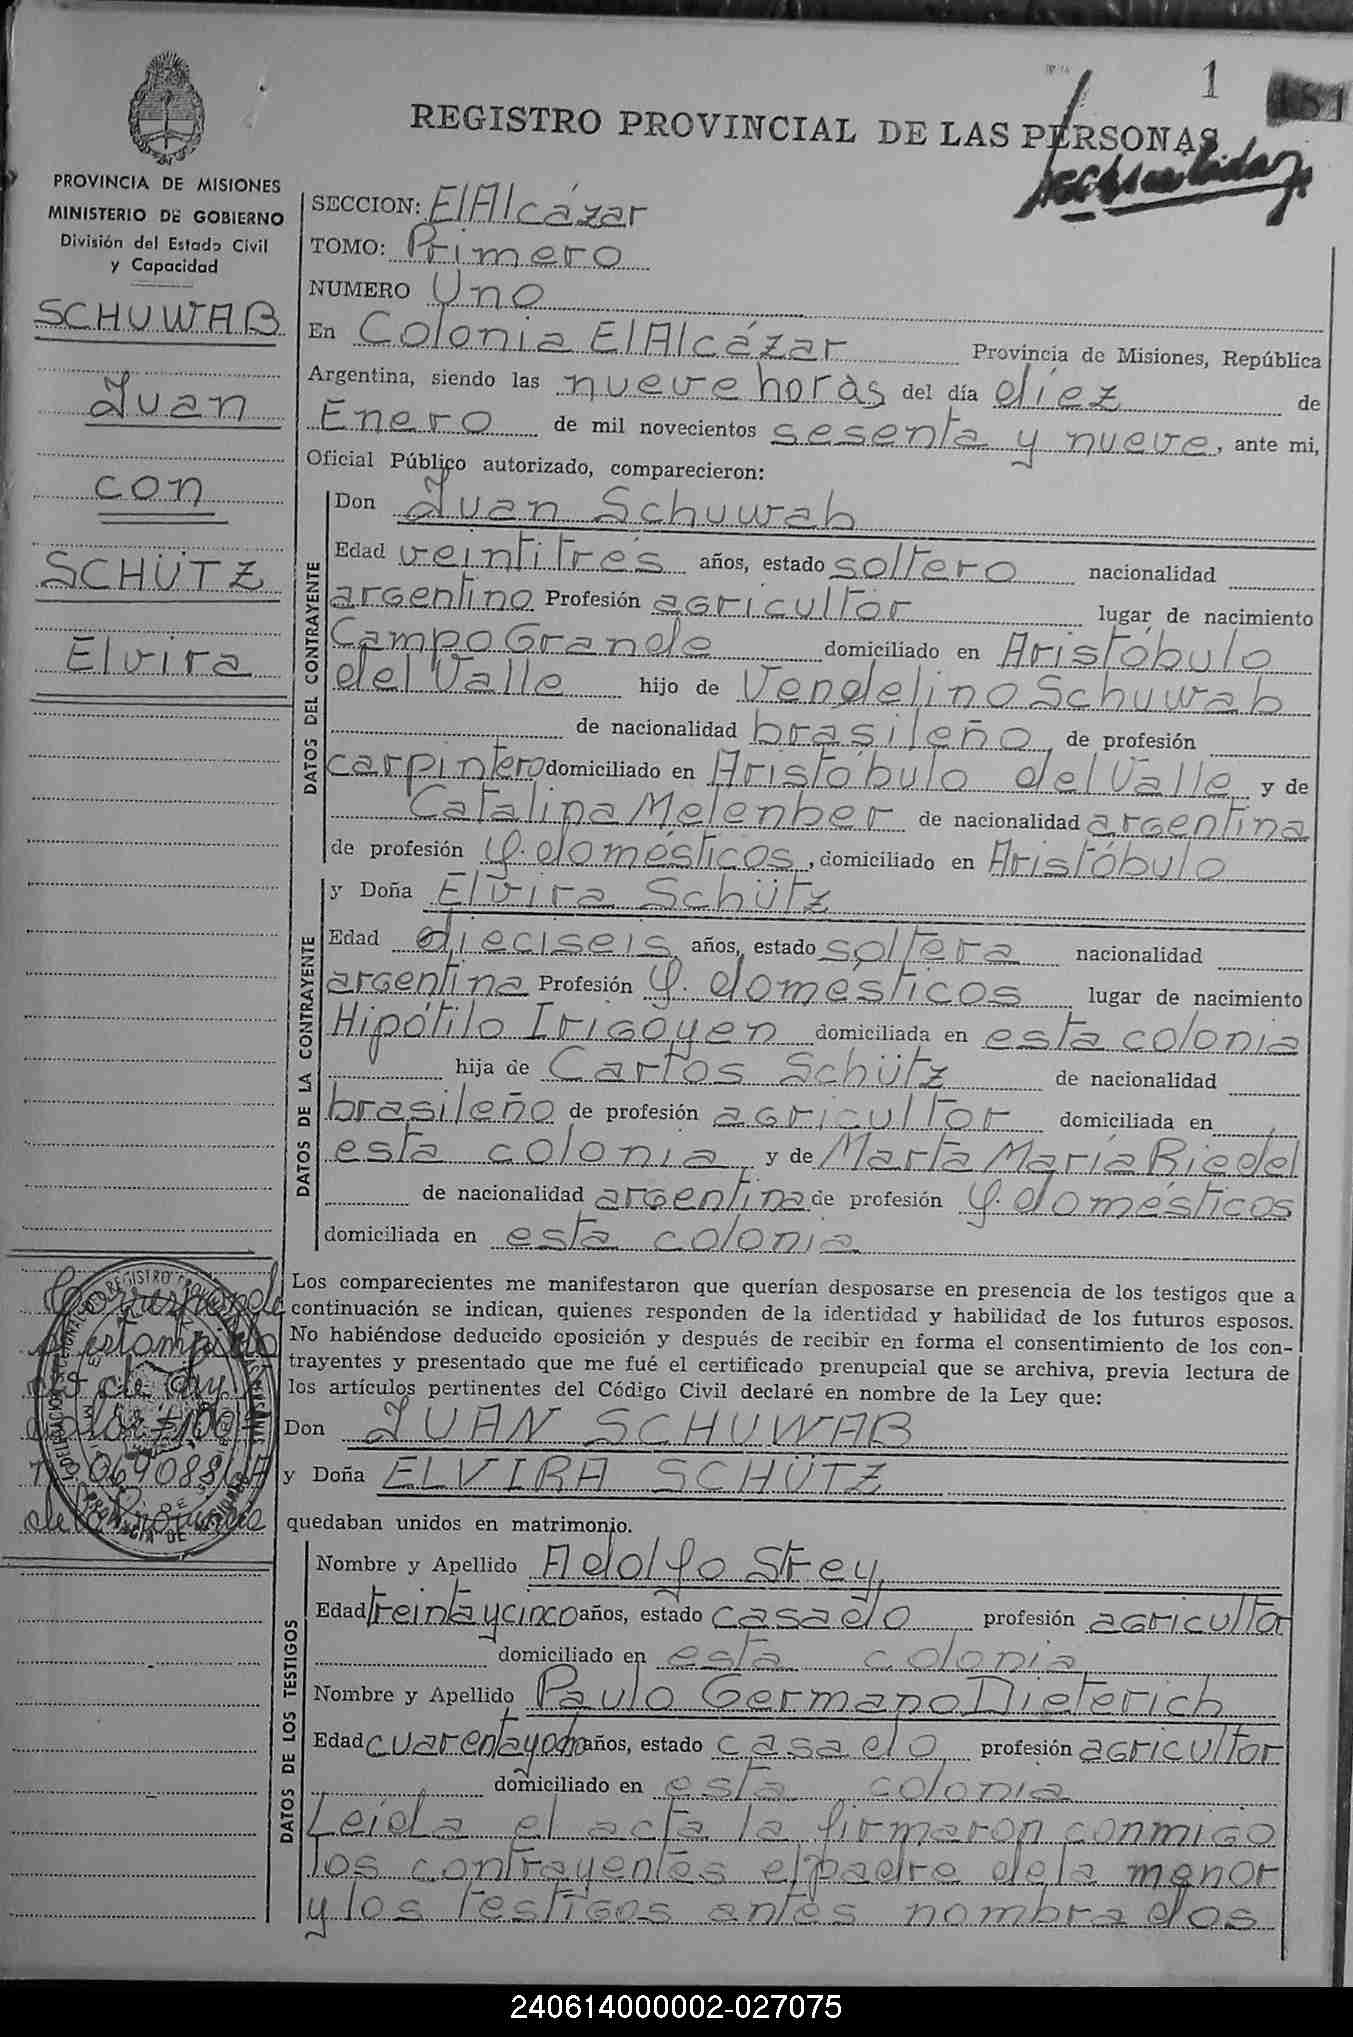 1
REGISTRO PROVINCIAL DE LAS PERSONAS
PROVINCIA DE MISIONES
MINISTERIO DE GOBIERNO
División del Estado Civil
y Capacidad
SCHUWAB
Juan
con
SCHÜTZ
Elvira
SECCION: El Alcázar
TOMO: Primero
NUMERO Uno
En Colonia El Alcázar Provincia de Misiones, República
Argentina, siendo las nueve horas del día diez de
Enero de mil novecientos sesenta y nueve, ante mi,
Oficial Público autorizado, comparecieron:
DATOS DEL CONTRAYENTE
Don Juan Schuwab
Edad veintitrés años, estado soltero nacionalidad
argentino Profesión agricultor lugar de nacimiento
Campo Grande domiciliado en Aristóbulo
del Valle hijo de Vendelino Schuwab
de nacionalidad brasileño, de profesión
carpintero domiciliado en Aristóbulo del Valle y de
Catalina Melenber de nacionalidad argentina
de profesión q. domésticos, domiciliado en Aristóbulo
DATOS DE LA CONTRAYENTE
y Doña Elvira Schütz
Edad dieciseis años, estado soltera nacionalidad
argentina Profesión q. domésticos lugar de nacimiento
Hipótilo Irigoyen domiciliada en esta colonia
hija de Carlos Schütz de nacionalidad
brasileño de profesión agricultor domiciliada en
esta colonia y de Marta María Riedel
de nacionalidad argentina de profesión q. domésticos
domiciliada en esta colonia
Los comparecientes me manifestaron que querían desposarse en presencia de los testigos que a
continuación se indican, quienes responden de la identidad y habilidad de los futuros esposos.
No habiéndose deducido oposición y después de recibir en forma el consentimiento de los con-
trayentes y presentado que me fué el certificado prenupcial que se archiva, previa lectura de
los artículos pertinentes del Código Civil declaré en nombre de la Ley que:
Don JUAN SCHUWAB
y Doña ELVIRA SCHÜTZ
quedaban unidos en matrimonio.
Corresponde
estampilla
069088
de la Provincia
DATOS DE LOS TESTIGOS
Nombre y Apellido Adolfo Strey
Edad treinta y cinco años, estado casado profesión agricultor
domiciliado en esta colonia
Nombre y Apellido Paulo Germano Dieterich
Edad cuarenta y ocho años, estado casado profesión agricultor
domiciliado en esta colonia
Leída el acta la firmaron conmigo
los contrayentes el padre de la menor
y los testigos antes nombrados
240614000002-027075